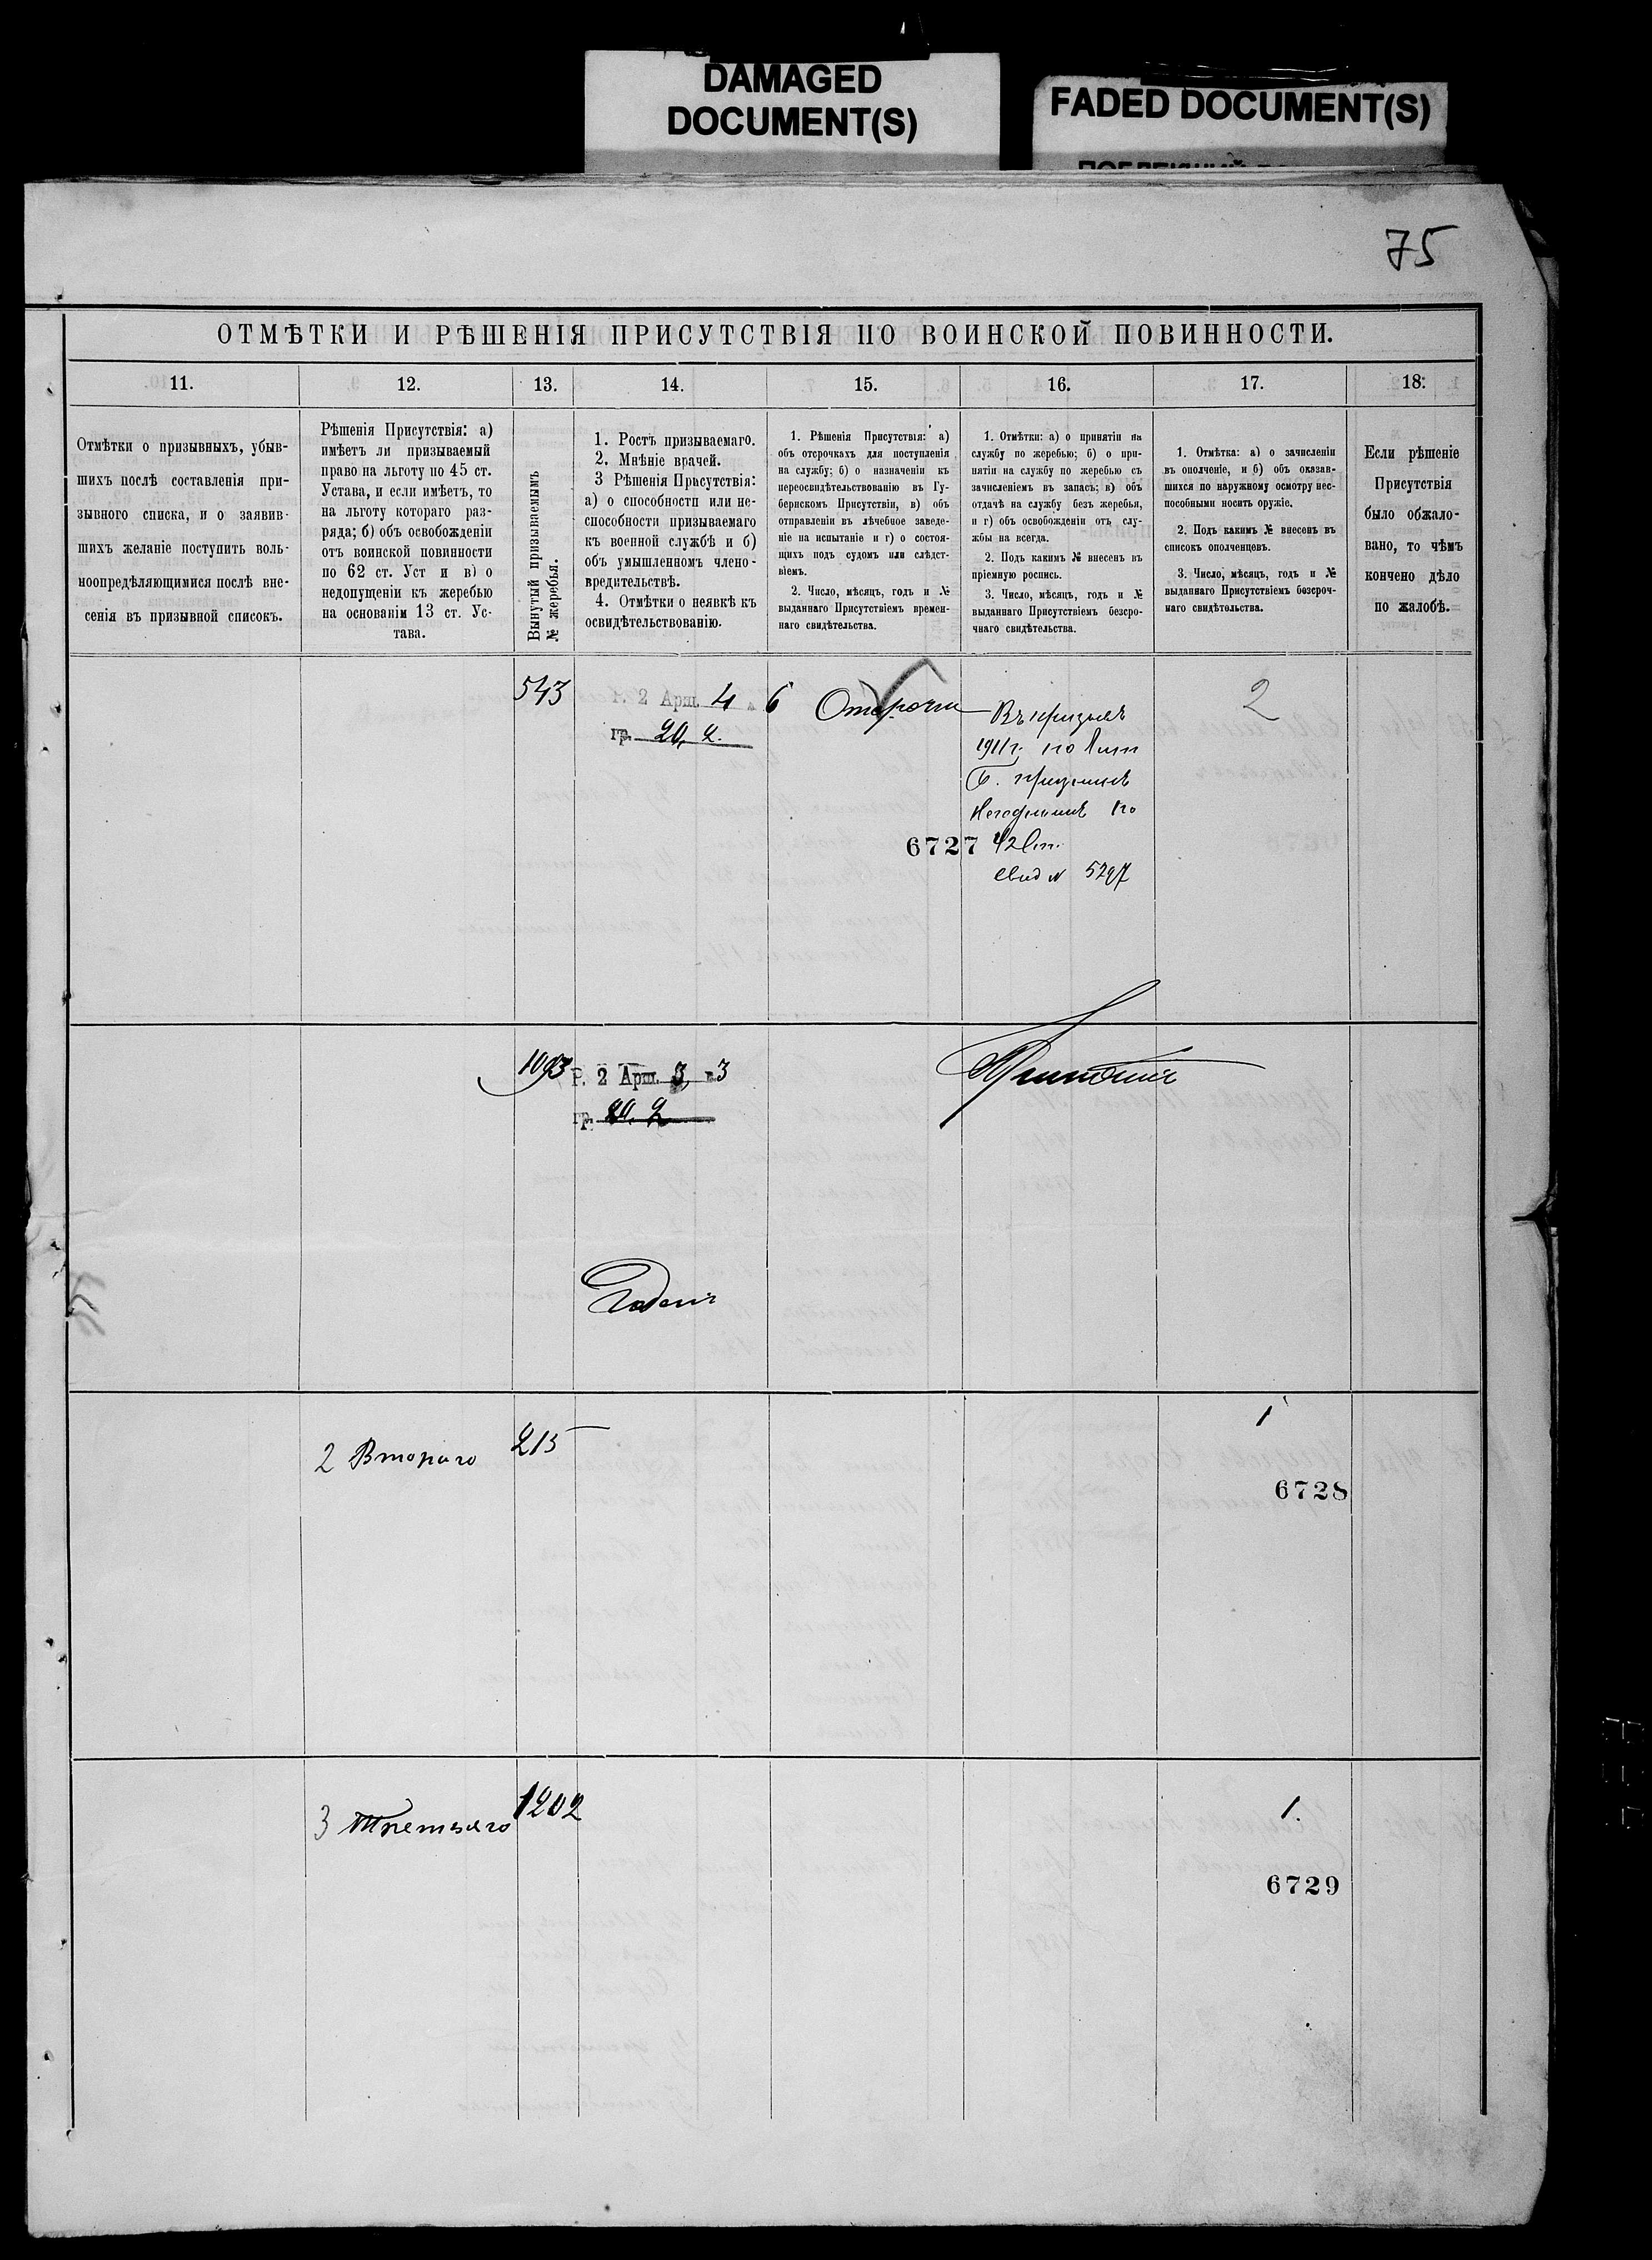 DAMAGED
DOCUMENT(S)
FADED DOCUMENT(S)
75
ОТМѢТКИ И РѢШЕНІЯ ПРИСУТСТВІЯ ПО ВОИНСКОЙ ПОВИННОСТИ.
11.
12.
13.
14.
15.
16.
17.
18.
Отмѣтки о призывныхъ, убыв-
шихъ послѣ составленія при-
зывного списка, и о заявив-
шихъ желаніе поступить воль-
ноопредѣляющимися послѣ вне-
сенія въ призывной списокъ.
Рѣшенія Присутствія: а)
имѣетъ ли призываемый
право на льготу по 45 ст.
Устава, и если имѣетъ, то
на льготу котораго раз-
ряда; б) объ освобожденіи
отъ воинской повинности
по 62 ст. Уст и в) о
недопущеніи къ жеребью
на основаніи 13 ст. Ус-
тава.
Вынутый призываемымъ
№ жеребья.
1. Ростъ призываемаго.
2. Мнѣніе врачей.
3 Рѣшенія Присутствія:
а) о способности или не-
способности призываемаго
къ военной службѣ и б)
объ умышленномъ члено-
вредительствѣ.
4. Отмѣтки о неявкѣ къ
освидѣтельствованію.
1. Рѣшенія Присутствія: а)
объ отсрочкахъ для поступленія
на службу; б) о назначеніи къ
переосвидѣтельствованію въ Гу-
бернскомъ Присутствіи, в) объ
отправленіи въ лѣчебное заведе-
ніе на испытаніе и г) о состоя-
щихъ подъ судомъ или слѣдст-
віемъ.
2. Число, мѣсяцъ, годъ и №
выданнаго Присутствіемъ времен-
наго свидѣтельства.
1. Отмѣтки: а) о принятіи на
службу по жеребью; б) о при-
нятіи на службу по жеребью съ
зачисленіемъ въ запасъ; в) объ
отдачѣ на службу безъ жеребья,
и г) объ освобожденіи отъ слу-
жбы на всегда.
2. Подъ какимъ № внесенъ въ
пріемную роспись.
3. Число, мѣсяцъ, годъ и №
выданнаго Присутствіемъ безсро-
чнаго свидѣтельства.
1. Отмѣтка: а) о зачисленіи
въ ополченіе, и б) объ оказав-
шихся по наружному осмотру нес-
пособными носить оружіе.
2. Подъ какимъ № внесенъ въ
списокъ ополченцевъ.
3. Число, мѣсяцъ, годъ и №
выданнаго Присутствіемъ безсроч-
наго свидѣтельства.
Если рѣшеніе
Присутствія
было обжало-
вано, то чѣмъ
кончено дѣло
по жалобѣ.
543
Р. 2 Арш. 4 в 6
гр. 20, 2.
Отсрочка
Въ призывъ
1911 г. по Лит
Б. признанъ
Негоднымъ по
42 Ст.
свид № 5297
6727
2
1093
Р. 2 Арш. 3, в. 3
гр. 20. 2
Годенъ
Принятъ
2 Втораго
215
1
6728
3 Третьяго
1202
1.
6729